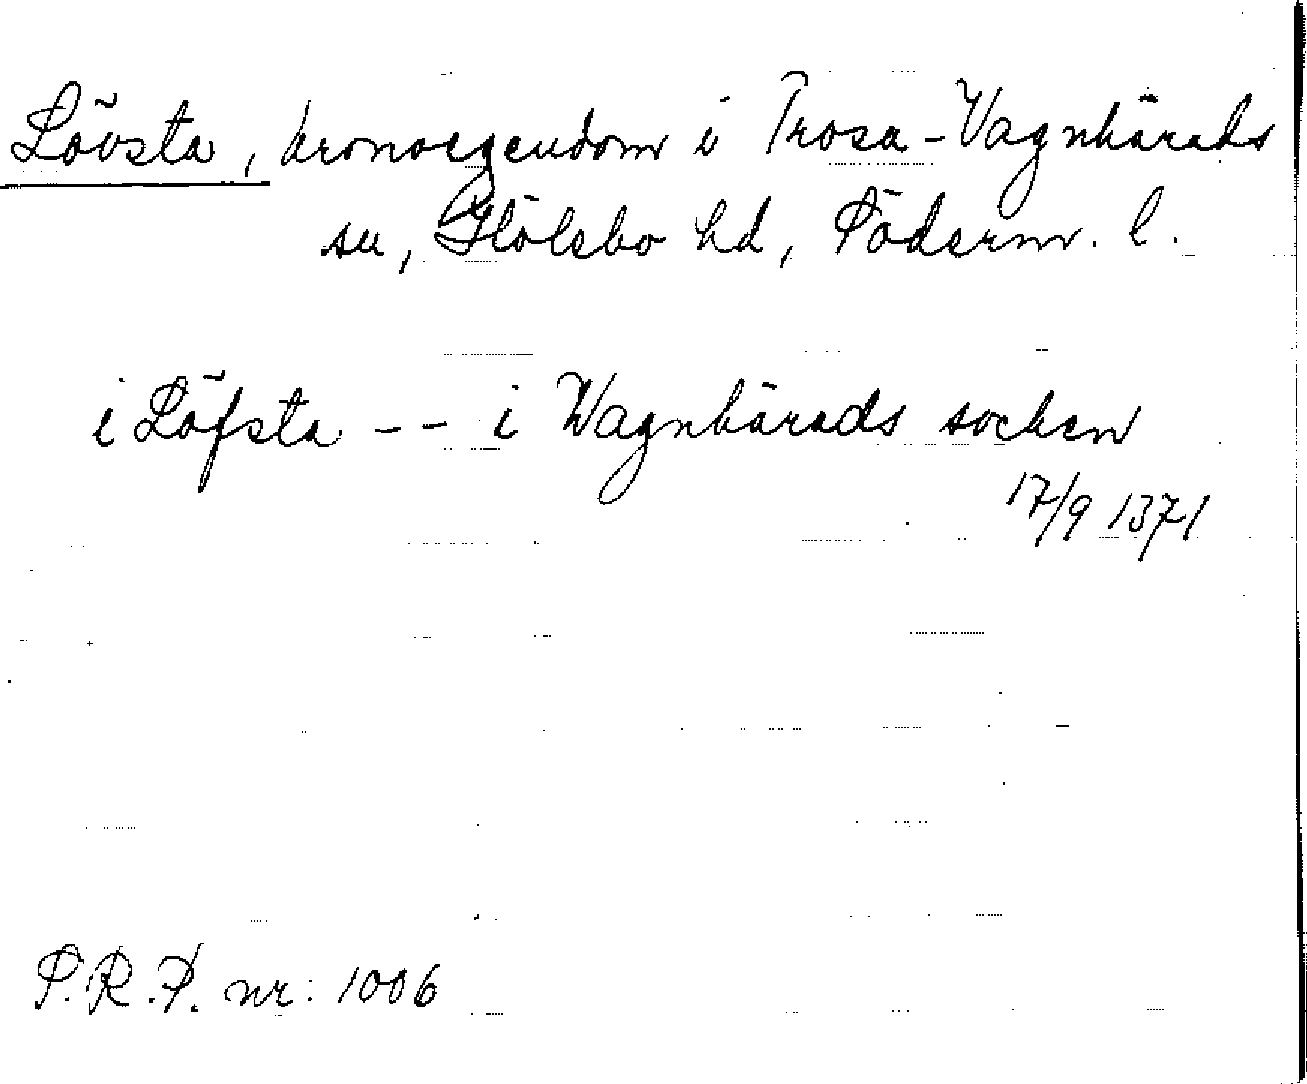 Lövsta, kronoegendom i Trosa-Vagnhärads
sn, Hölebo hd, Söderm. l.
i Löfsta -- i Wagnhärads socken
17/9 1371
S.R.P. nr: 1006